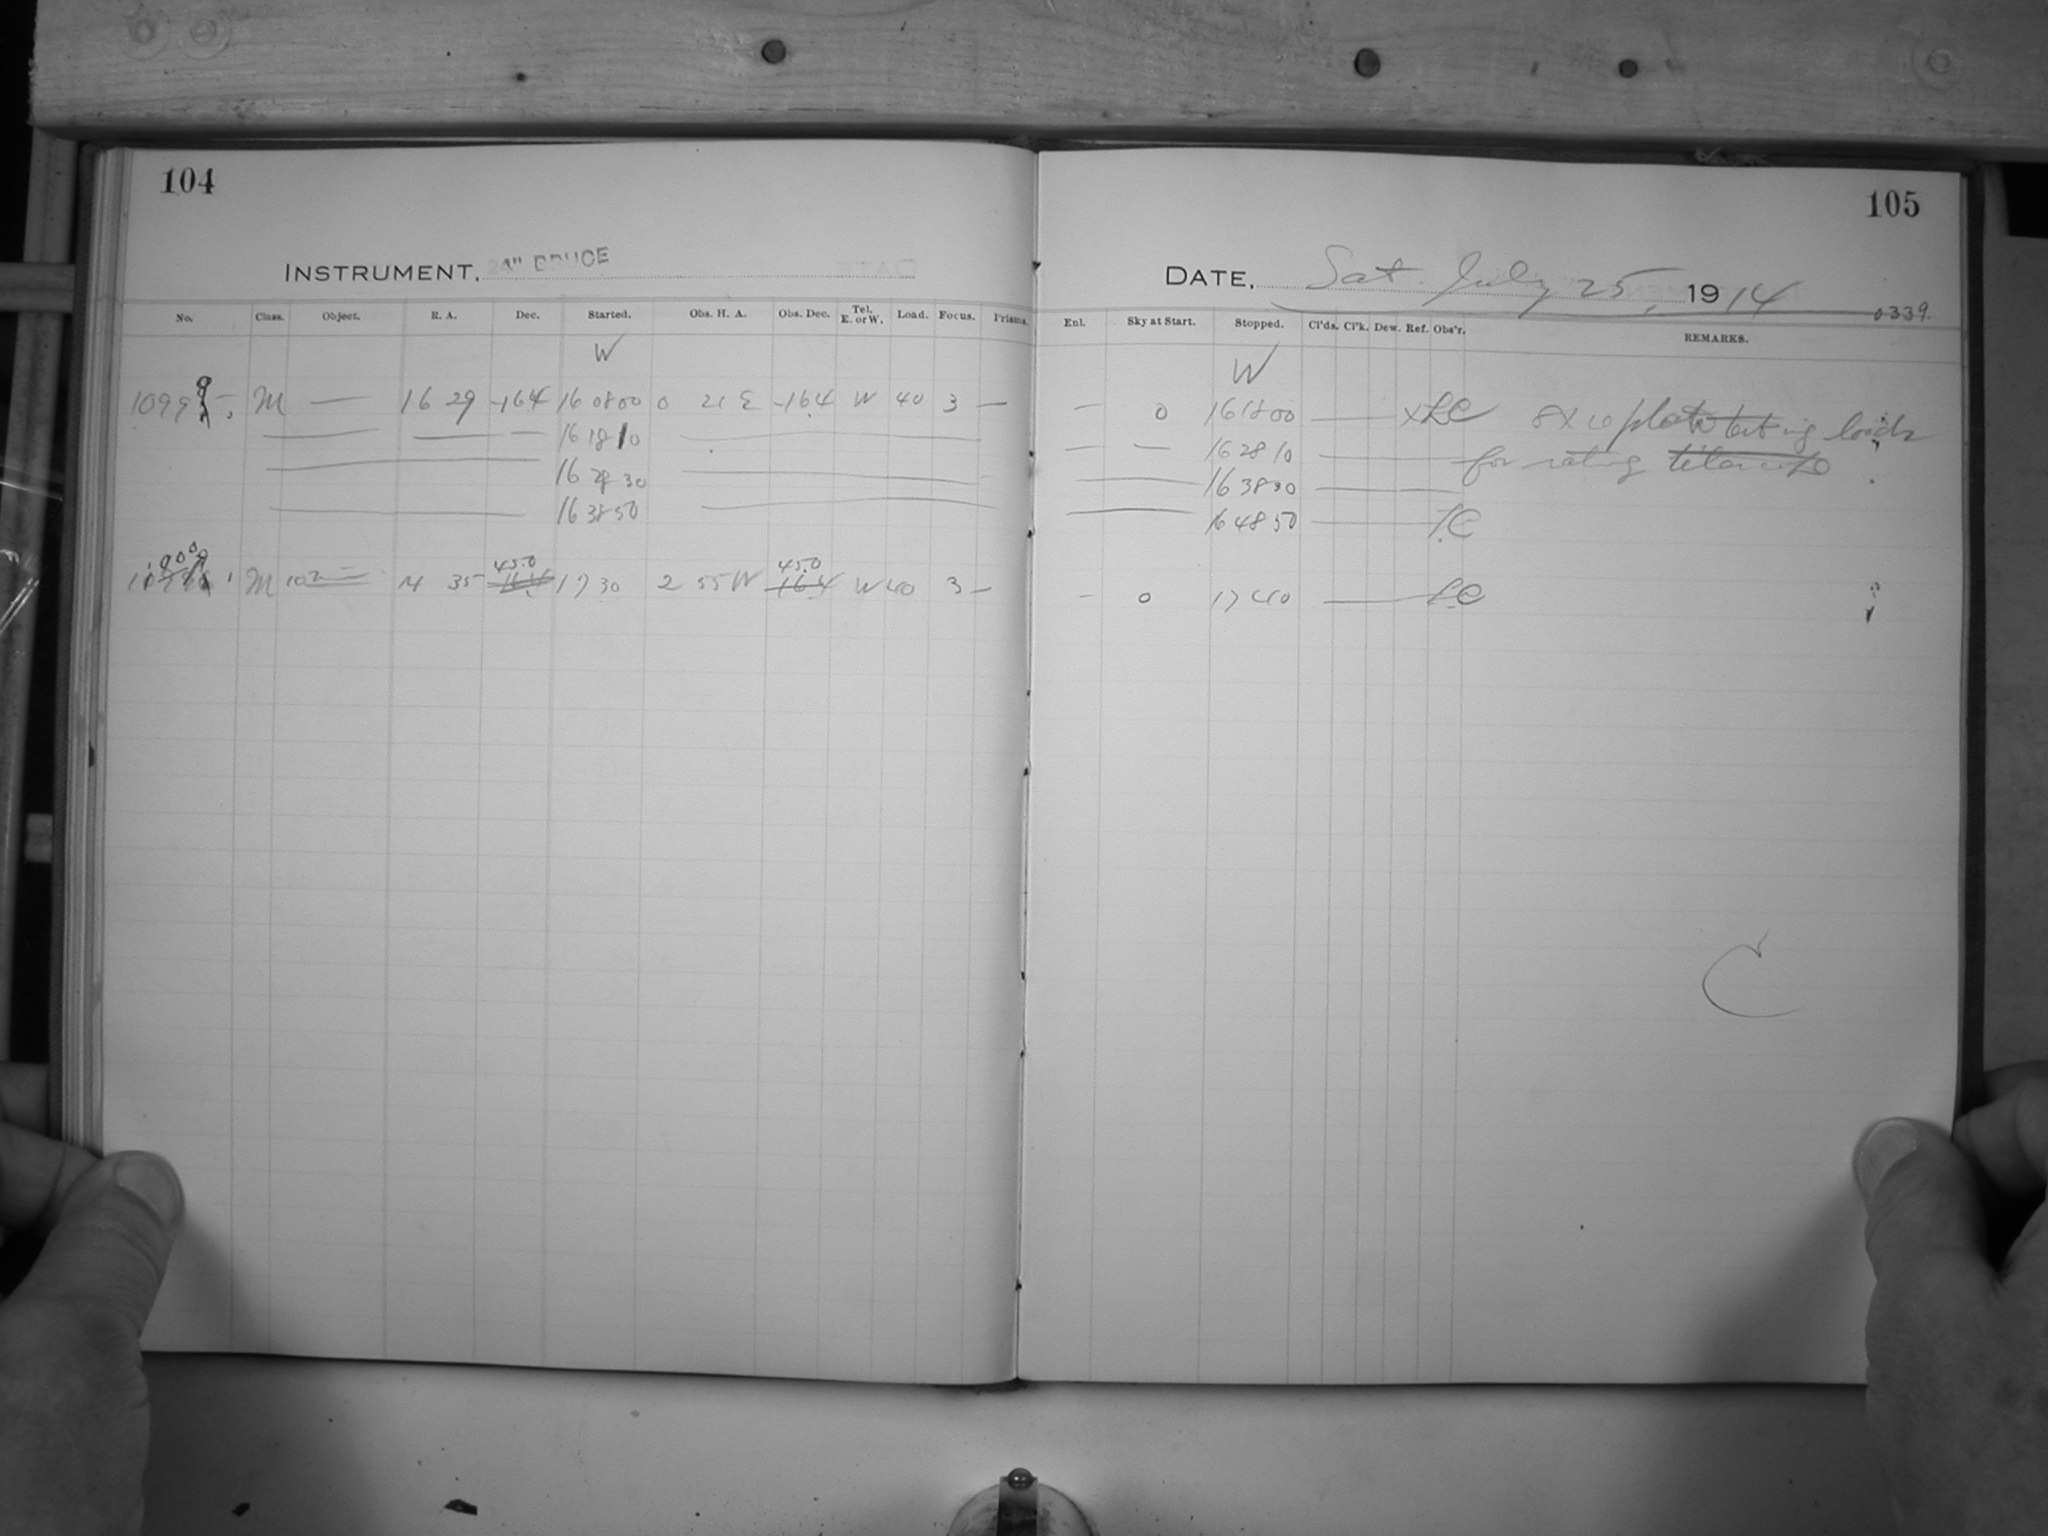 104
105
INSTRUMENT, 4" BRUCE
DATE, Sat. July 25, 1914
0339.
No. Class. Object. R. A. Dec. Started. Obs. H. A. Obs. Dec. Tel. E. or W. Load. Focus. Prisms.
Enl. Sky at Start. Stopped. Cl'ds. Cl'k. Dew. Ref. Obs'r. REMARKS.
W W
10999 M — 16 29 -16.4 16 08 00 0 21 E -16.4 W 40 3 —
— 0 16 18 00 — × LC 8 x 10 plate testing loads
16 18 10
— — 16 28 10 — for rating
16 28 30
16 38 30
16 38 50
16 48 50 LC
45.0 45.0
M 14 35 16.4 17 30 2 55 W 16.4 W 40 3 —
- 0 17 40 — LC
C